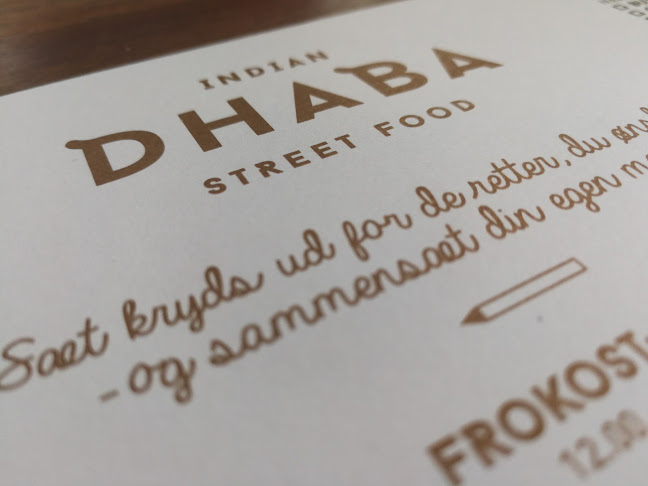 INDIAN
DHABA
STREET FOOD
Sæt kryds ud for de retter, du
- og sammensæt din egen
FROKOST
12.00